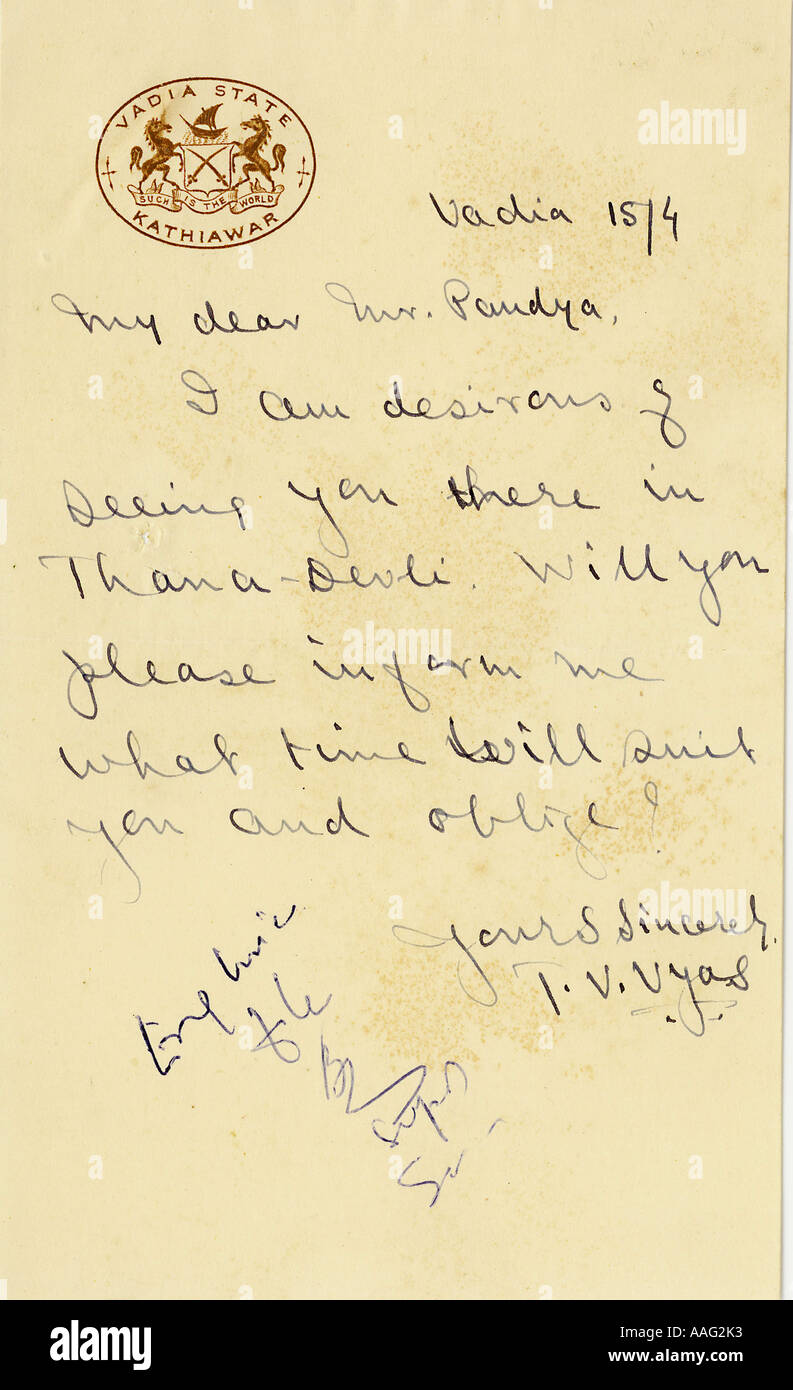 VADIA STATE
SUCH IS THE WORLD
KATHIAWAR
Vadia 15/4
My dear Mr. Pandya,
I am desirous of
seeing you there in
Thana-Devli. Will you
please inform me
what time will suit
you and oblige?
Yours Sincerely,
T. V. Vyas
alamy
Image ID: AAG2K3
www.alamy.com